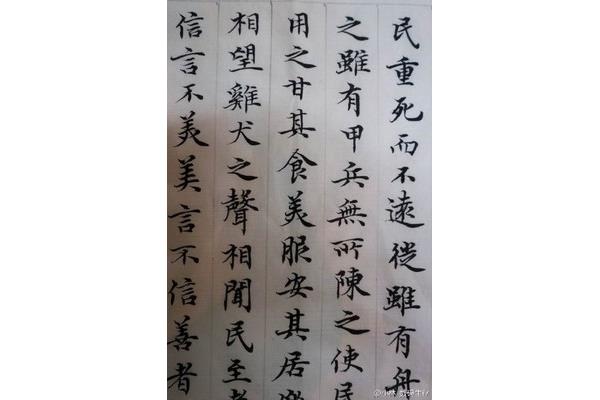 民重死而不遠徙雖有舟
之雖有甲兵無所陳之使民
用之甘其食美服安其居樂
相望雞犬之聲相聞民至老
信言不美美言不信善者